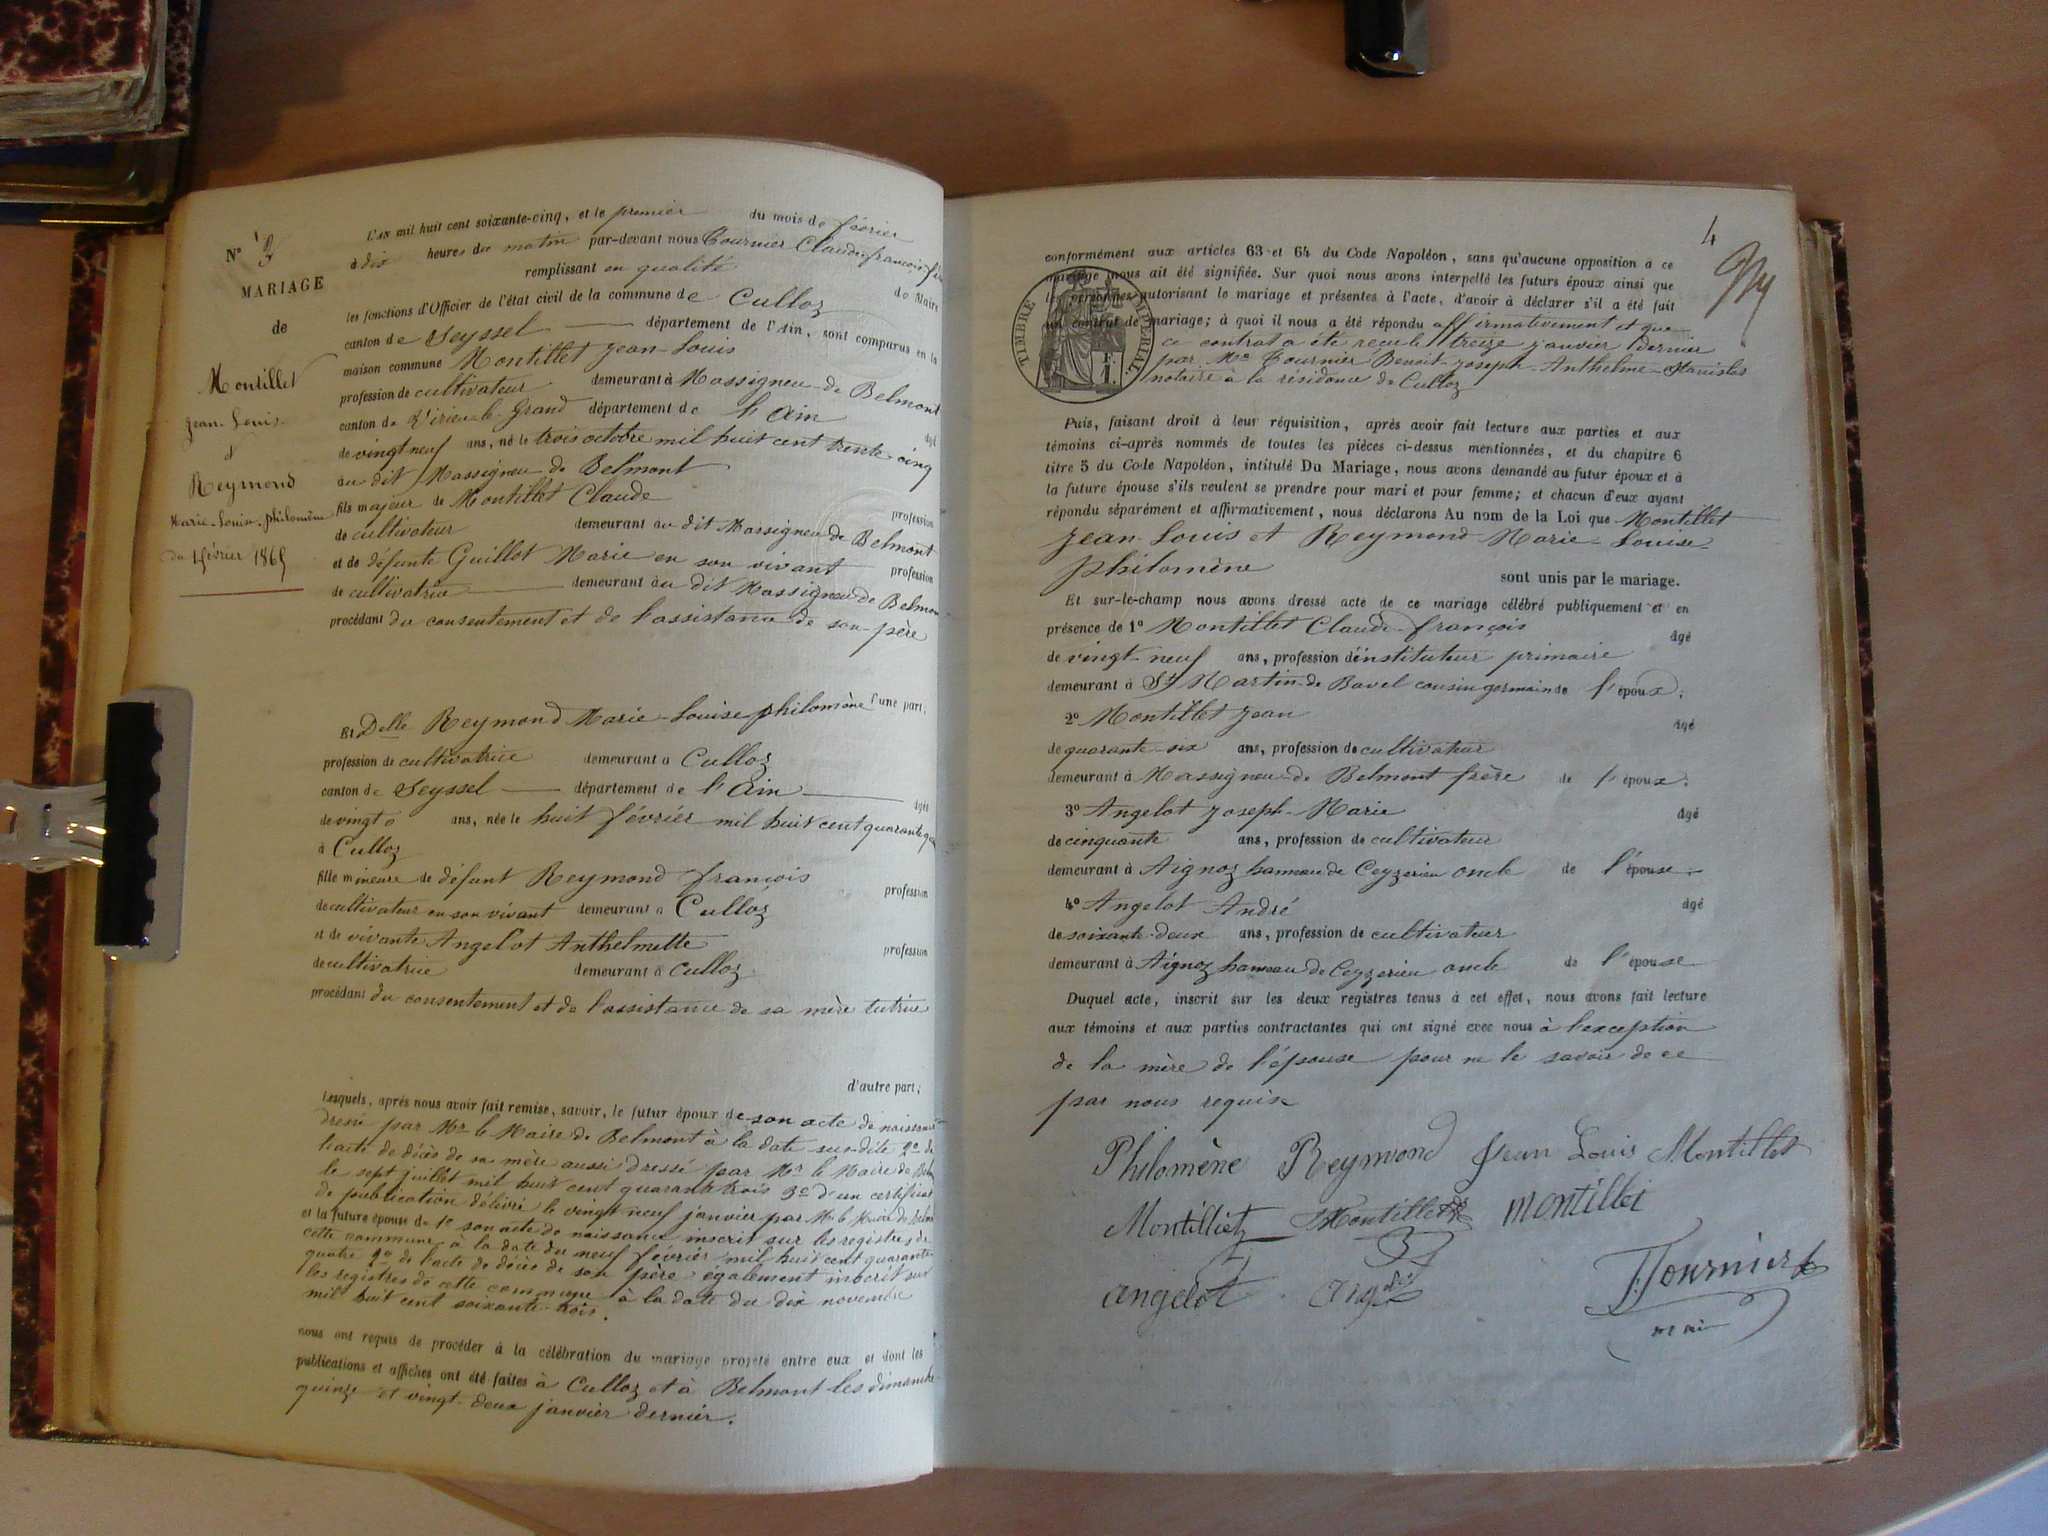 N° 2
MARIAGE
de
Montillet
Jean-Louis
et
Reymond
Marie-Louise-philomène
du 1 février 1865
L'AN mil huit cent soixante-cinq, et le premier du mois de février
à dix heures du matin par-devant nous Tournier Claude françois
remplissant en qualité de Maire
les fonctions d'Officier de l'état civil de la commune de Culloz
canton de Seyssel département de l'Ain, sont comparus en la
maison commune Montillet Jean-Louis
profession de cultivateur demeurant à Massigneu-de Belmont
canton de Virieu-le-Grand département de l'Ain âgé
de vingt neuf ans, né le trois octobre mil huit cent trente-cinq
au dit Massigneu de Belmont
fils majeur de Montillet Claude profession
de cultivateur demeurant au dit Massigneu de Belmont
et de défunte Guillot Marie en son vivant profession
de cultivatrice demeurant au dit Massigneu de Belmont
procédant du consentement et de l'assistance de son père
d'une part;
Et Delle Reymond Marie-Louise philomène
profession de cultivatrice demeurant à Culloz
canton de Seyssel département de l'Ain âgée
de vingt ans, née le huit février mil huit cent quarante
à Culloz
fille mineure de défunt Reymond françois profession
de cultivateur en son vivant demeurant à Culloz
et de vivante Angelot Anthelmette profession
de cultivatrice demeurant à Culloz
procédant du consentement et de l'assistance de sa mère tutrice
d'autre part;
Lesquels, après nous avoir fait remise, savoir, le futur époux de son acte de naissance
dressé par Mr le Maire de Belmont à la date sus-dite 2° de
l'acte de décès de sa mère aussi dressé par Mr le Maire de
le sept juillet mil huit cent quarante trois 3° d'un certificat
de publication délivré le vingt neuf janvier par Mr le Maire de
et la future épouse de 1° son acte de naissance inscrit sur les registres de
cette commune à la date du neuf février mil huit cent quarante
quatre 2° de l'acte de décès de son père également inscrit sur
les registres de cette commune à la date du dix novembre
mil huit cent soixante-trois.
nous ont requis de procéder à la célébration du mariage projeté entre eux et dont les
publications et affiches ont été faites à Culloz et à Belmont les dimanche
quinze et vingt-deux janvier dernier.
4
conformément aux articles 63 et 64 du Code Napoléon, sans qu'aucune opposition à ce
mariage nous ait été signifiée. Sur quoi nous avons interpellé les futurs époux ainsi que
les personnes autorisant le mariage et présentes à l'acte, d'avoir à déclarer s'il a été fait
un contrat de mariage; à quoi il nous a été répondu affirmativement et que
ce contrat a été reçu le treize janvier dernier
par Me Tournier Benoit-Joseph-Anthelme-Stanislas
notaire à la résidence de Culloz
TIMBRE IMPÉRIAL
1 F.
Puis, faisant droit à leur réquisition, après avoir fait lecture aux parties et aux
témoins ci-après nommés de toutes les pièces ci-dessus mentionnées, et du chapitre 6
titre 5 du Code Napoléon, intitulé Du Mariage, nous avons demandé au futur époux et à
la future épouse s'ils veulent se prendre pour mari et pour femme; et chacun d'eux ayant
répondu séparément et affirmativement, nous déclarons Au nom de la Loi que Montillet
Jean-Louis et Reymond Marie-Louise-
philomène sont unis par le mariage.
Et sur-le-champ nous avons dressé acte de ce mariage célébré publiquement et en
présence de 1° Montillet Claude-françois âgé
de vingt-neuf ans, profession d'instituteur primaire
demeurant à St Martin-de Bavel cousin germain de l'époux;
2° Montillet Jean âgé
de quarante-six ans, profession de cultivateur
demeurant à Massigneu-de Belmont frère de l'époux;
3° Angelot Joseph-Marie âgé
de cinquante ans, profession de cultivateur
demeurant à Aignoz hameau de Ceyzerieu oncle de l'épouse
4° Angelot André âgé
de soixante-deux ans, profession de cultivateur
demeurant à Aignoz hameau de Ceyzerieu oncle de l'épouse
Duquel acte, inscrit sur les deux registres tenus à cet effet, nous avons fait lecture
aux témoins et aux parties contractantes qui ont signé avec nous à l'exception
de la mère de l'épouse pour ne le savoir de ce
par nous requise
Philomène Reymond Jean Louis Montillet
Montilliet Montillet montillet
angelot
Tournier
maire